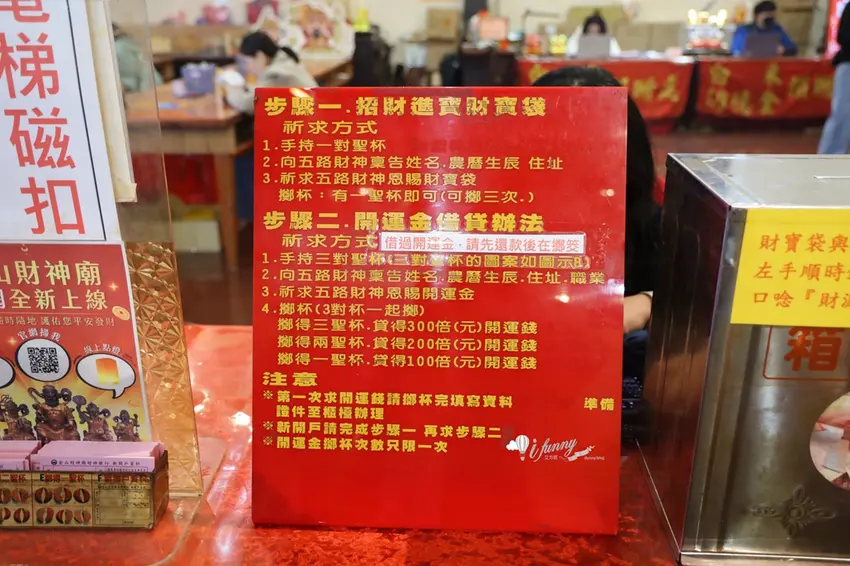 電梯磁扣
山財神廟
全新上線
隨時隨地 護佑您平安發財
官網掃我
線上點燈
步驟一.招財進寶財寶袋
祈求方式
1.手持一對聖杯
2.向五路財神稟告姓名.農曆生辰 住址
3.祈求五路財神恩賜財寶袋
擲杯：有一聖杯即可(可擲三次.)
步驟二.開運金借貸辦法
祈求方式
借過開運金，請先還款後在擲筊
1.手持三對聖杯(三對聖杯的圖案如圖示B)
2.向五路財神稟告姓名.農曆生辰.住址.職業
3.祈求五路財神恩賜開運金
4.擲杯(3對杯一起擲)
擲得三聖杯.貸得300倍(元)開運錢
擲得兩聖杯.貸得200倍(元)開運錢
擲得一聖杯.貸得100倍(元)開運錢
注意
※第一次求開運錢請擲杯完填寫資料 準備
證件至櫃檯辦理
※新開戶請完成步驟一 再求步驟二
※開運金擲杯次數只限一次
i funny
財寶袋與
左手順時
口唸『財源
箱